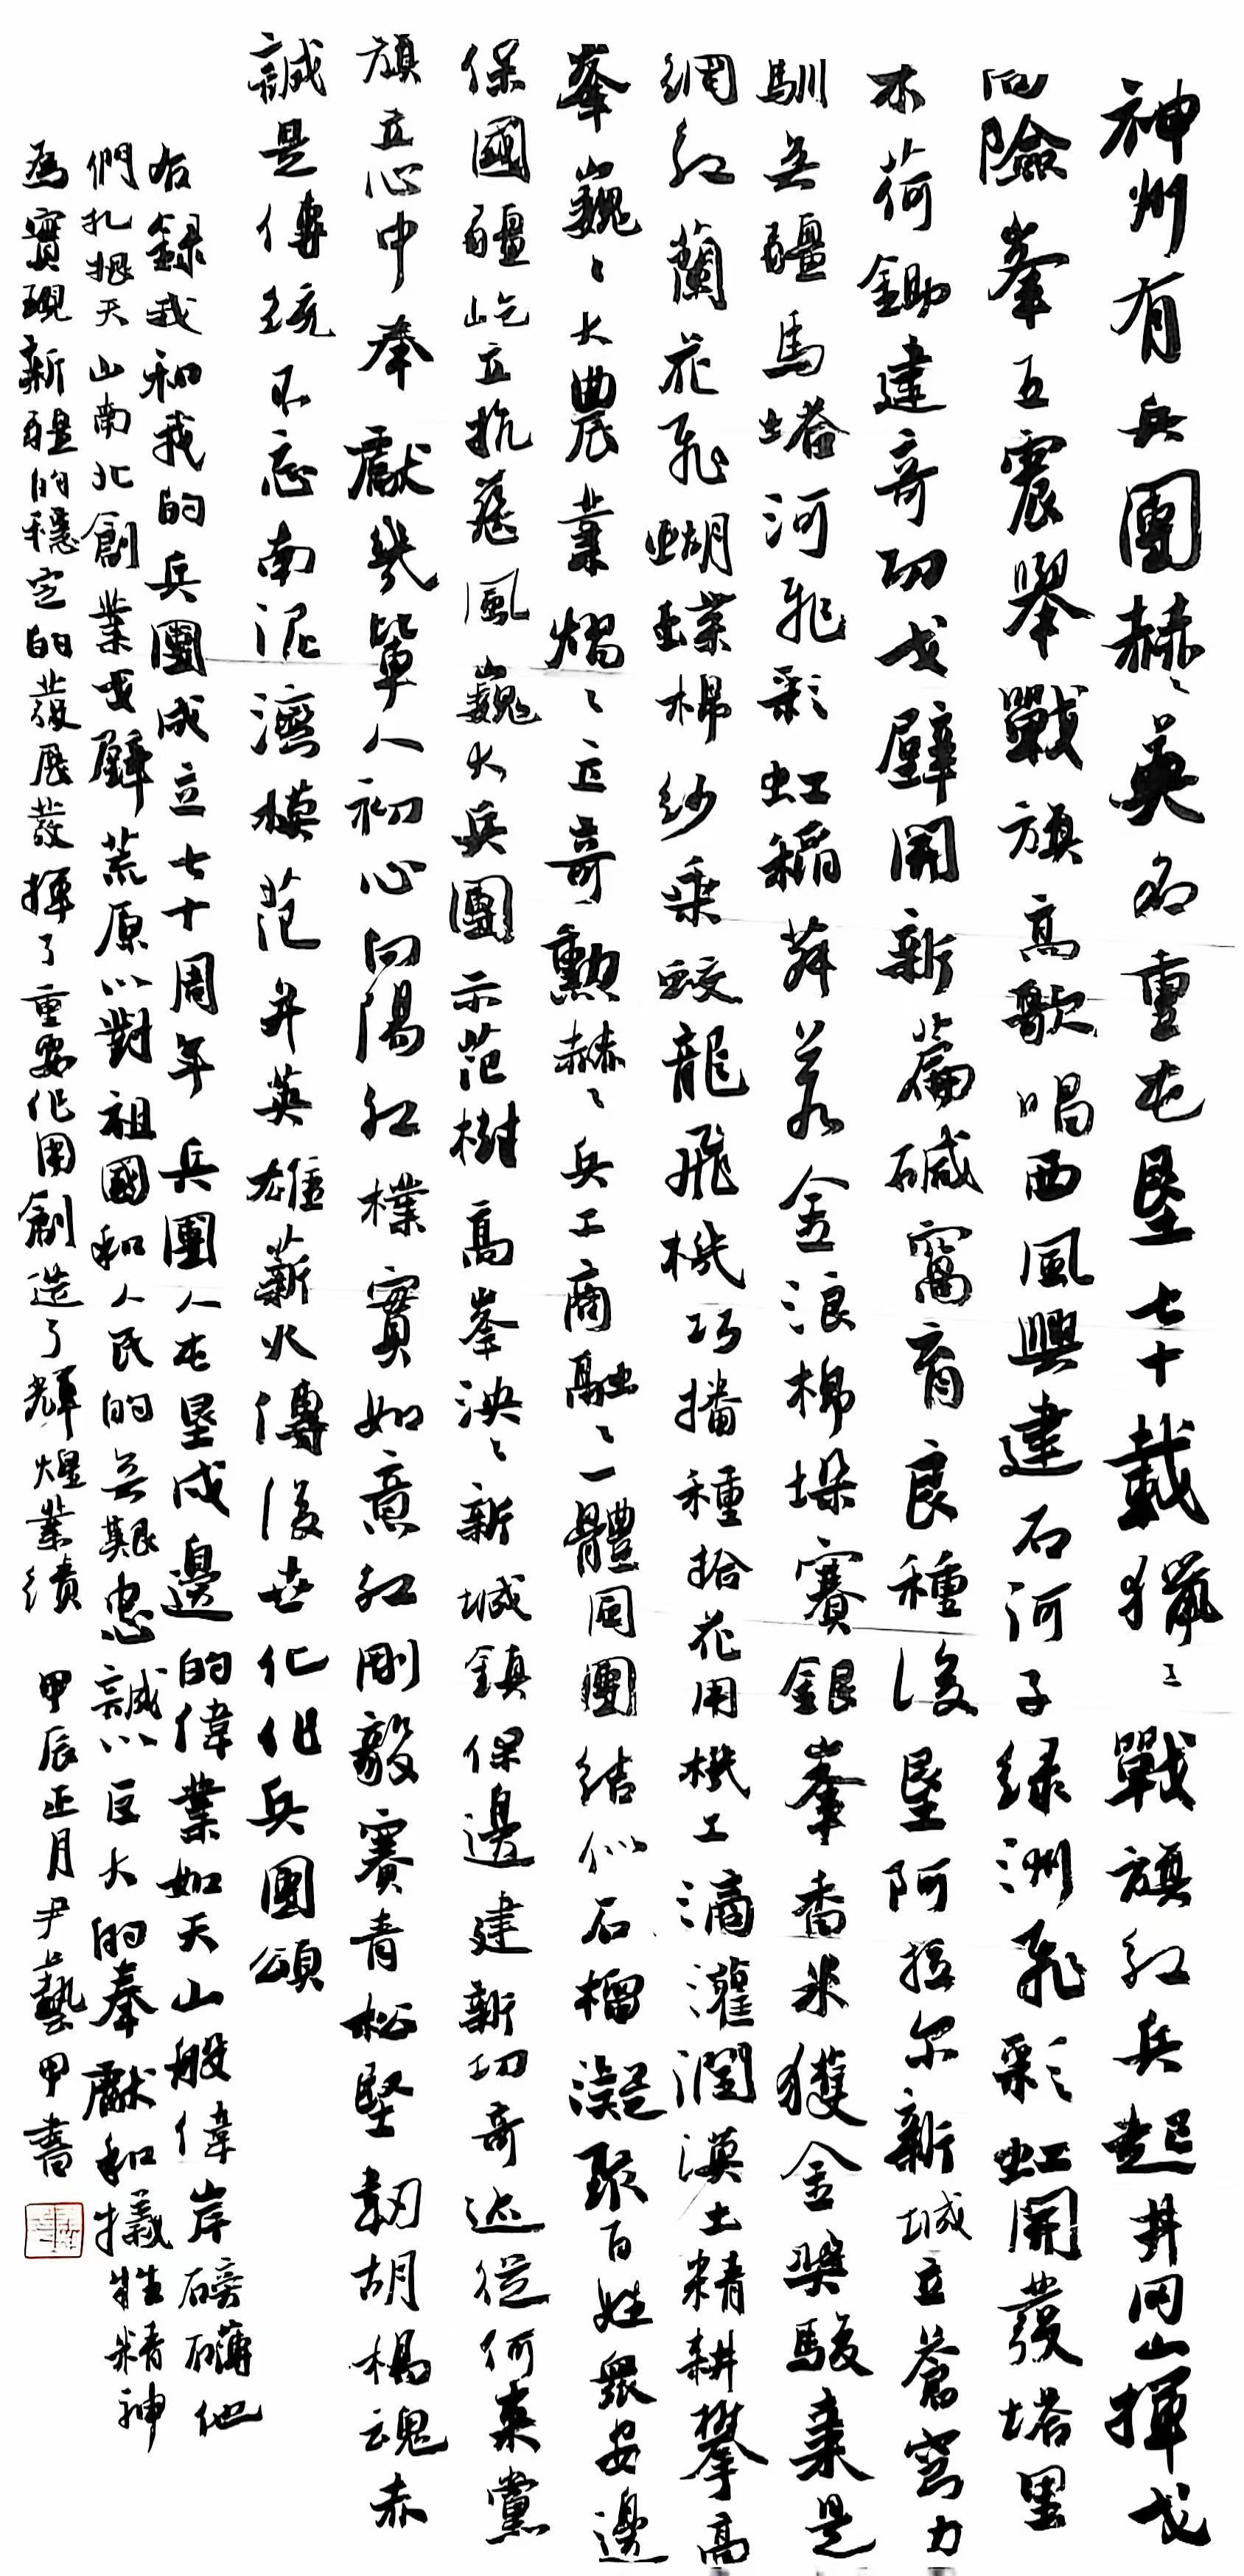 神州有兵團赫々英名重屯墾七十載獵々戰旗紅兵起井冈山揮戈
向險峯五震舉戰旗高歌唱西風興建石河子绿洲飛彩虹開發塔里
木荷鋤建奇功戈壁開新篇碱窩育良種後墾阿拉尔新城立蒼穹力
馴无疆馬塔河飛彩虹稻荐若金浪棉垛賽銀峯香米獲金奬駿棗是
網紅蘭花飛蝴蝶棉紗乘蛟龍飛機巧播種拾花用機工滴灌潤漠土精耕攀高
峯巍々大農業熠々立奇勳赫々兵工商融々一體同團結似石榴凝聚百姓眾安邊
保國疆屹立抗舊風巍大兵團示范樹高峯泱々新城鎮保邊建新功奇迹從何來黨
旗立心中奉獻幾輩人初心向陽紅樸實如意紅剛毅賽青松堅韌胡楊魂赤
誠是傳統不忘南泥灣模范并英雄薪火傳後世化作兵團頌
右録我和我的兵團成立七十周年兵團人屯墾戍邊的偉業如天山般偉岸磅礴他
們扎根天山南北創業戈壁荒原以對祖國和人民的无艱忠誠以巨大的奉獻和犧牲精神
為實現新疆的穩定的發展發揮了重要作用創造了輝煌業績 甲辰正月尹藝甲書